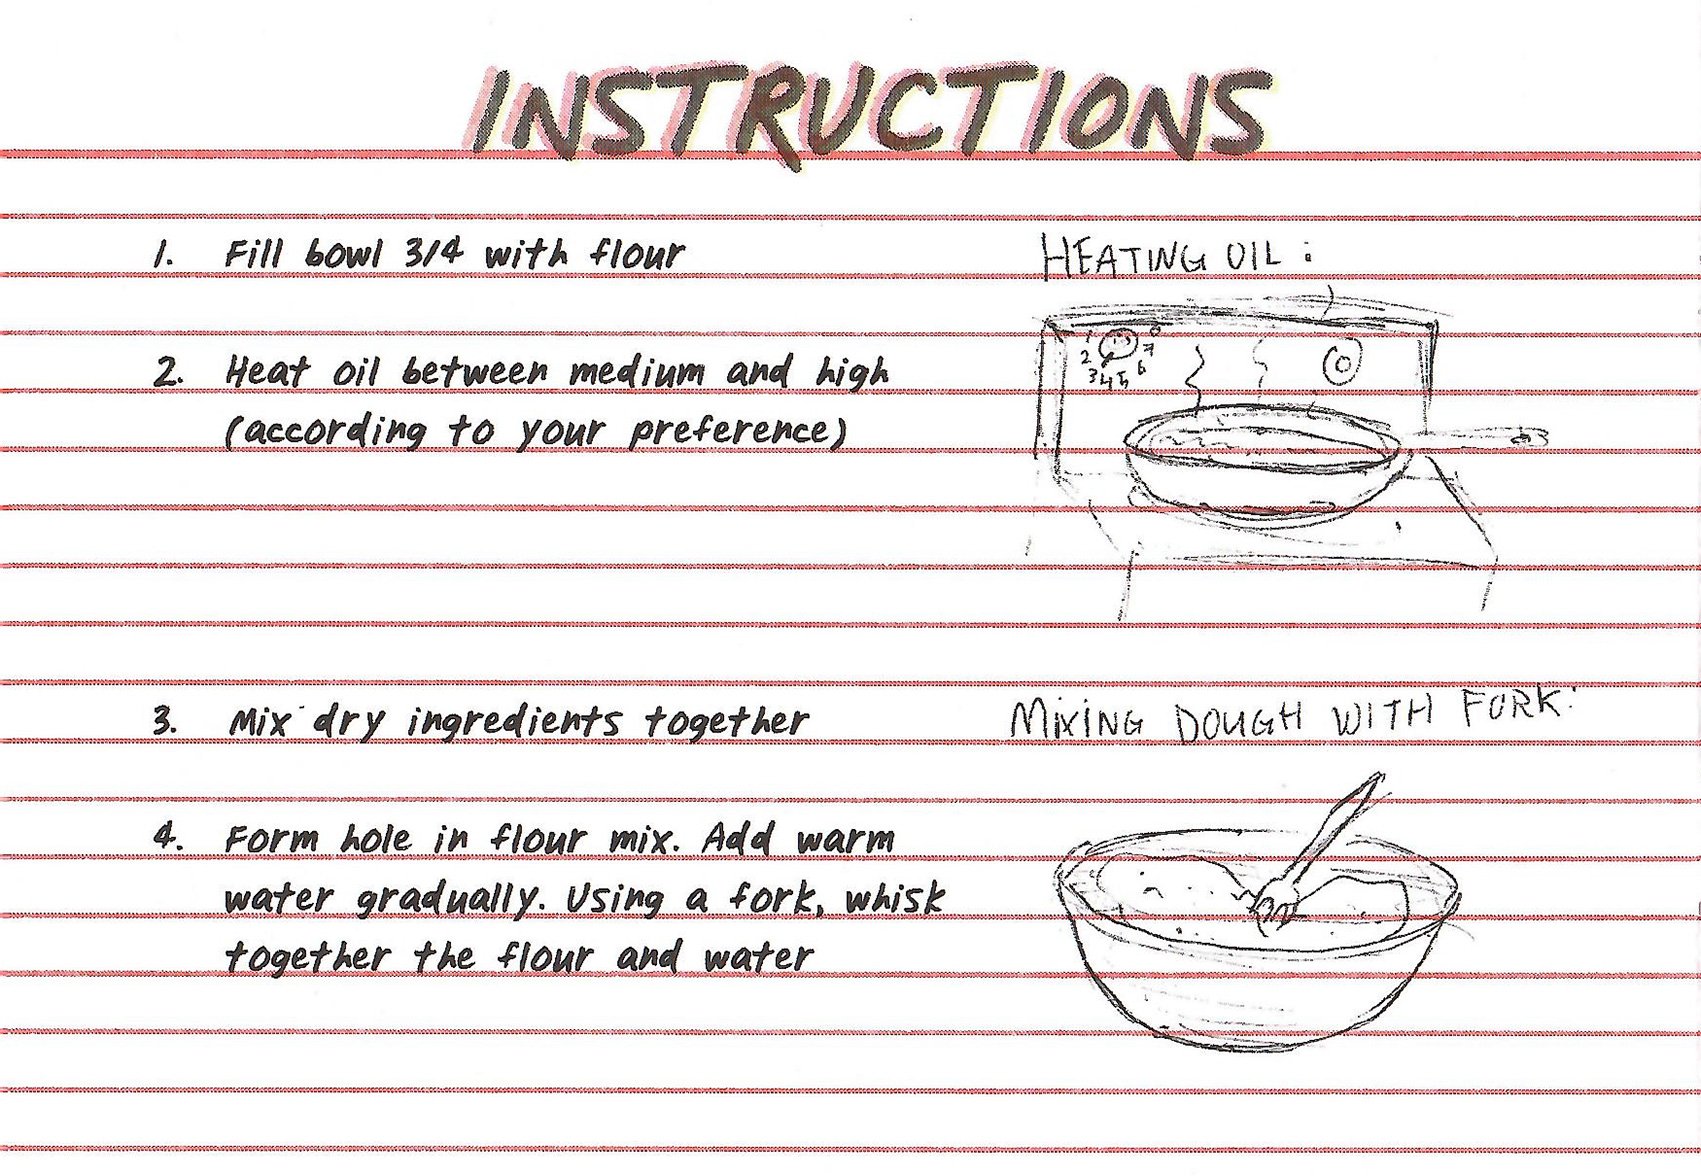 INSTRUCTIONS
1. Fill bowl 3/4 with flour
HEATING OIL:
2. Heat oil between medium and high
(according to your preference)
1 2 3 4 5 6 7 8
3. Mix dry ingredients together
MIXING DOUGH WITH FORK:
4. Form hole in flour mix. Add warm
water gradually. Using a fork, whisk
together the flour and water